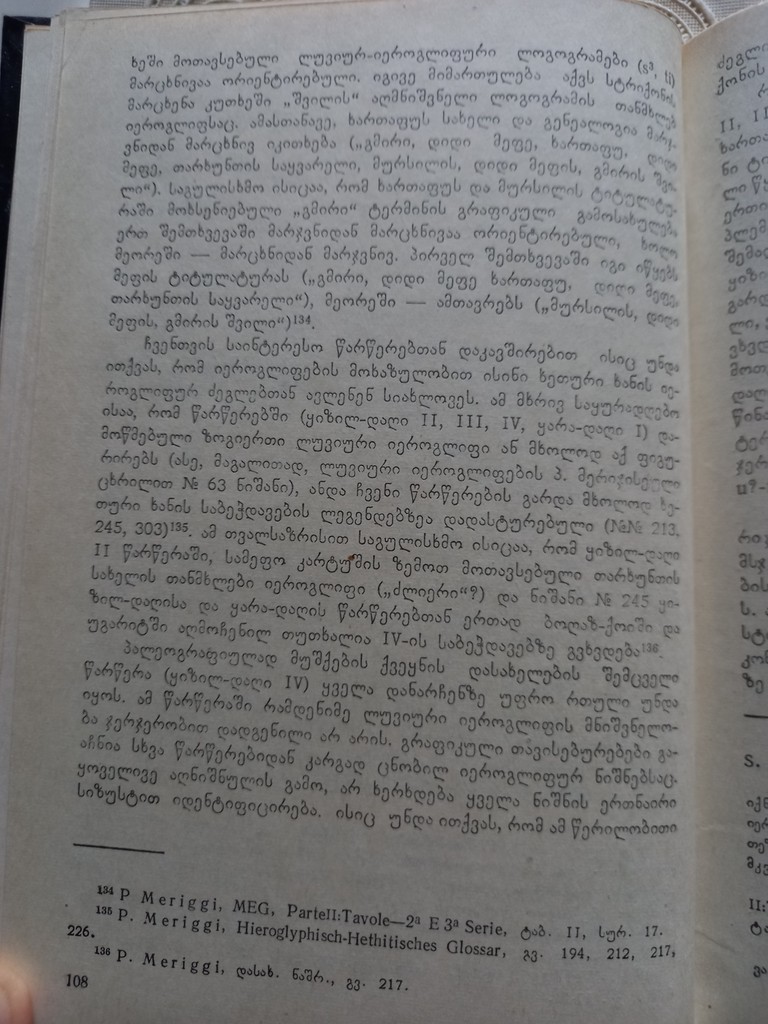 ხეში მოთავსებული ლუვიურ-იეროგლიფური ლოგოგრამები (sᵃ, ti)
მარცხნივაა ორიენტირებული. იგივე მიმართულება აქვს სტრიქონის
მარცხენა კუთხეში „შვილის“ აღმნიშვნელი ლოგოგრამის თანმხლებ
იეროგლიფსაც. ამასთანავე, ხართაფუს სახელი და გენეალოგია მარჯ-
ვნიდან მარცხნივ იკითხება („გმირი, დიდი მეფე, ხართაფუ, დიდი
მეფე, თარხუნთის საყვარელი, მურსილის, დიდი მეფის, გმირის შვი-
ლი“). საგულისხმო ისიცაა, რომ ხართაფუს და მურსილის ტიტულატუ-
რაში მოხსენიებული „გმირი“ ტერმინის გრაფიკული გამოსახულება
ერთ შემთხვევაში მარჯვნიდან მარცხნივაა ორიენტირებული, ხოლო
მეორეში — მარცხნიდან მარჯვნივ. პირველ შემთხვევაში იგი იწყებს
მეფის ტიტულატურას („გმირი, დიდი მეფე ხართაფუ, დიდი მეფე,
თარხუნთის საყვარელი“), მეორეში — ამთავრებს („მურსილის, დიდი
მეფის, გმირის შვილი“)¹³⁴.
ჩვენთვის საინტერესო წარწერებთან დაკავშირებით ისიც უნდა
ითქვას, რომ იეროგლიფების მოხაზულობით ისინი ხეთური ხანის იე-
როგლიფურ ძეგლებთან ავლენენ სიახლოვეს. ამ მხრივ საყურადღებო
ისაა, რომ წარწერებში (ყიზილ-დაღი II, III, IV, ყარა-დაღი I) და-
მოწმებული ზოგიერთი ლუვიური იეროგლიფი ან მხოლოდ აქ ფიგუ-
რირებს (ასე, მაგალითად, ლუვიური იეროგლიფების პ. მერიჯისეული
ცხრილით № 63 ნიშანი), ანდა ჩვენი წარწერების გარდა მხოლოდ ხე-
თური ხანის საბეჭდავების ლეგენდებზეა დადასტურებული (№№ 213,
245, 303)¹³⁵. ამ თვალსაზრისით საგულისხმო ისიცაა, რომ ყიზილ-დაღი
II წარწერაში, სამეფო კარტუშის ზემოთ მოთავსებული თარხუნთის
სახელის თანმხლები იეროგლიფი („ძლიერი“?) და ნიშანი № 245 ყი-
ზილ-დაღისა და ყარა-დაღის წარწერებთან ერთად ბოღაზ-ქოიში და
უგარიტში აღმოჩენილ თუთხალია IV-ის საბეჭდავებზე გვხვდება¹³⁶.
პალეოგრაფიულად მუშქების ქვეყნის დასახელების შემცველი
წარწერა (ყიზილ-დაღი IV) ყველა დანარჩენზე უფრო რთული უნდა
იყოს. ამ წარწერაში რამდენიმე ლუვიური იეროგლიფის მნიშვნელო-
ბა ჯერჯერობით დადგენილი არ არის. გრაფიკული თავისებურებები გა-
აჩნია სხვა წარწერებიდან კარგად ცნობილ იეროგლიფურ ნიშნებსაც.
ყოველივე აღნიშნულის გამო, არ ხერხდება ყველა ნიშნის ერთნაირი
სიზუსტით იდენტიფიცირება. ისიც უნდა ითქვას, რომ ამ წერილობითი
¹³⁴ P Meriggi, MEG, ParteII:Tavole—2ᵃ E 3ᵃ Serie, ტაბ. II, სურ. 17.
¹³⁵ P. Meriggi, Hieroglyphisch-Hethitisches Glossar, გვ. 194, 212, 217,
226.
¹³⁶ P. Meriggi, დასახ. ნაშრ., გვ. 217.
108